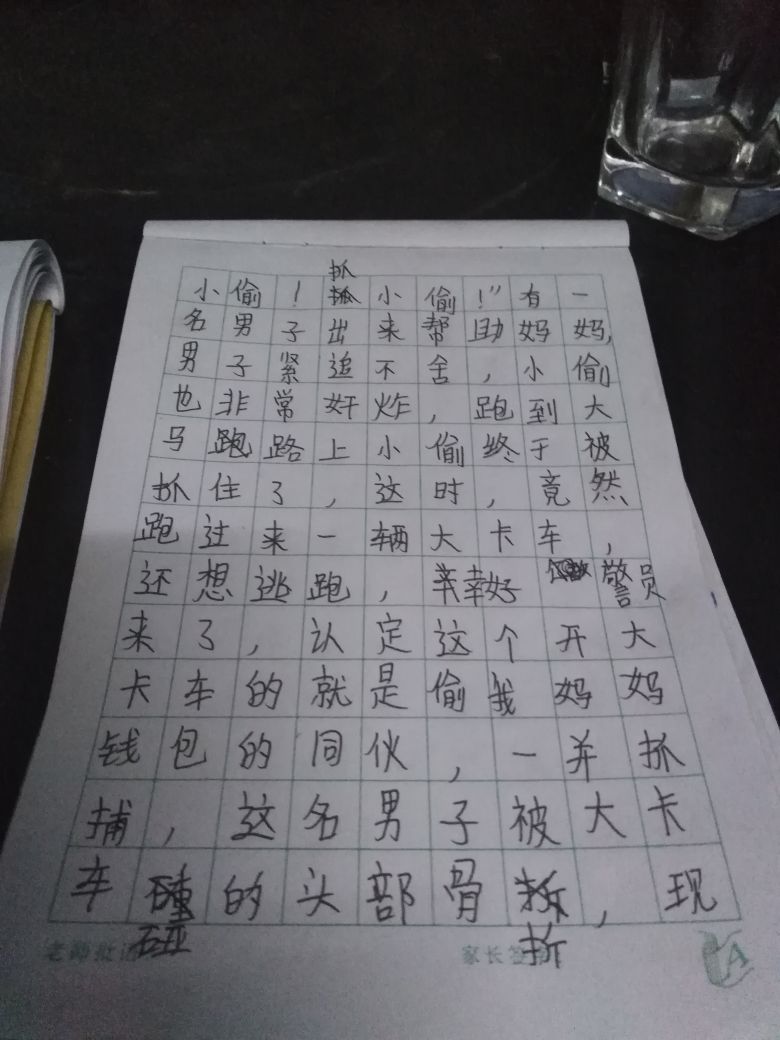 小偷！抓小偷！”有一
名男子出来帮助妈妈，
男子紧追不舍，小偷
也非常奸炸，跑到大
马跑路上小偷终于被
抓住了，这时，竟然
跑过来一辆大卡车，
还想逃跑，幸好警员
来了，认定这个开大
卡车的就是偷我妈妈
钱包的同伙，一并抓
捕，这名男子被大卡
车碰的头部骨折，现
老师批语
家长签字